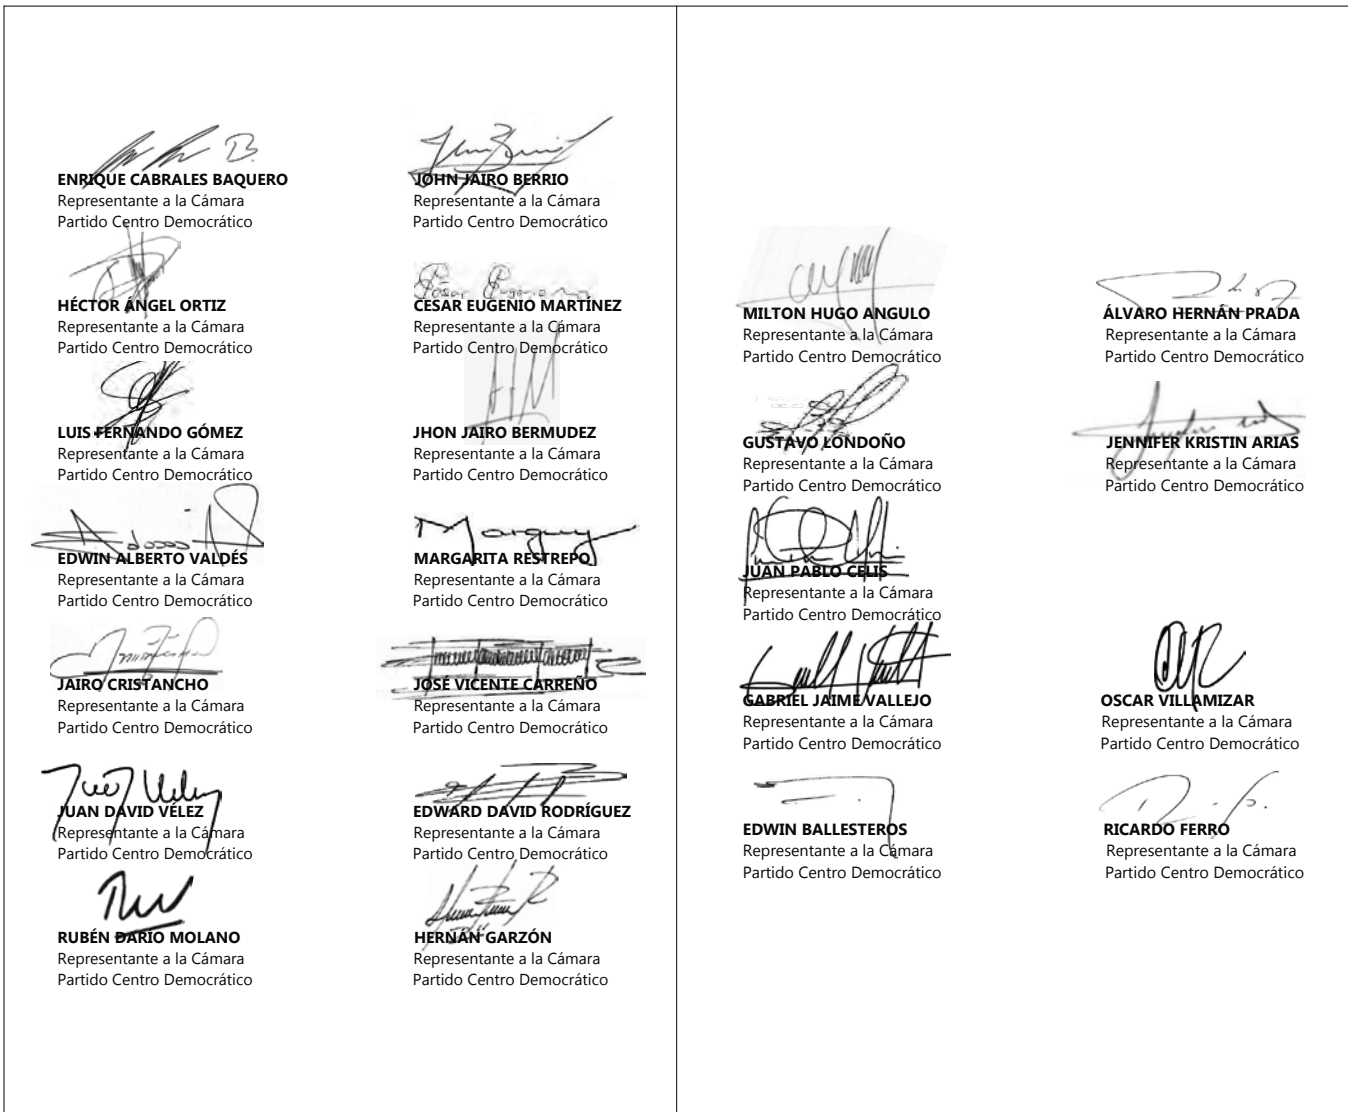 ENRIQUE CABRALES BAQUERO
Representante a la Cámara
Partido Centro Democrático
JOHN JAIRO BERRIO
Representante a la Cámara
Partido Centro Democrático
HÉCTOR ÁNGEL ORTIZ
Representante a la Cámara
Partido Centro Democrático
CÉSAR EUGENIO MARTÍNEZ
Representante a la Cámara
Partido Centro Democrático
LUIS FERNANDO GÓMEZ
Representante a la Cámara
Partido Centro Democrático
JHON JAIRO BERMUDEZ
Representante a la Cámara
Partido Centro Democrático
EDWIN ALBERTO VALDÉS
Representante a la Cámara
Partido Centro Democrático
MARGARITA RESTREPO
Representante a la Cámara
Partido Centro Democrático
JAIRO CRISTANCHO
Representante a la Cámara
Partido Centro Democrático
JOSÉ VICENTE CARREÑO
Representante a la Cámara
Partido Centro Democrático
JUAN DAVID VÉLEZ
Representante a la Cámara
Partido Centro Democrático
EDWARD DAVID RODRÍGUEZ
Representante a la Cámara
Partido Centro Democrático
RUBÉN DARÍO MOLANO
Representante a la Cámara
Partido Centro Democrático
HERNÁN GARZÓN
Representante a la Cámara
Partido Centro Democrático
MILTON HUGO ANGULO
Representante a la Cámara
Partido Centro Democrático
ÁLVARO HERNÁN PRADA
Representante a la Cámara
Partido Centro Democrático
GUSTAVO LONDOÑO
Representante a la Cámara
Partido Centro Democrático
JENNIFER KRISTIN ARIAS
Representante a la Cámara
Partido Centro Democrático
JUAN PABLO CELIS
Representante a la Cámara
Partido Centro Democrático
GABRIEL JAIME VALLEJO
Representante a la Cámara
Partido Centro Democrático
OSCAR VILLAMIZAR
Representante a la Cámara
Partido Centro Democrático
EDWIN BALLESTEROS
Representante a la Cámara
Partido Centro Democrático
RICARDO FERRO
Representante a la Cámara
Partido Centro Democrático